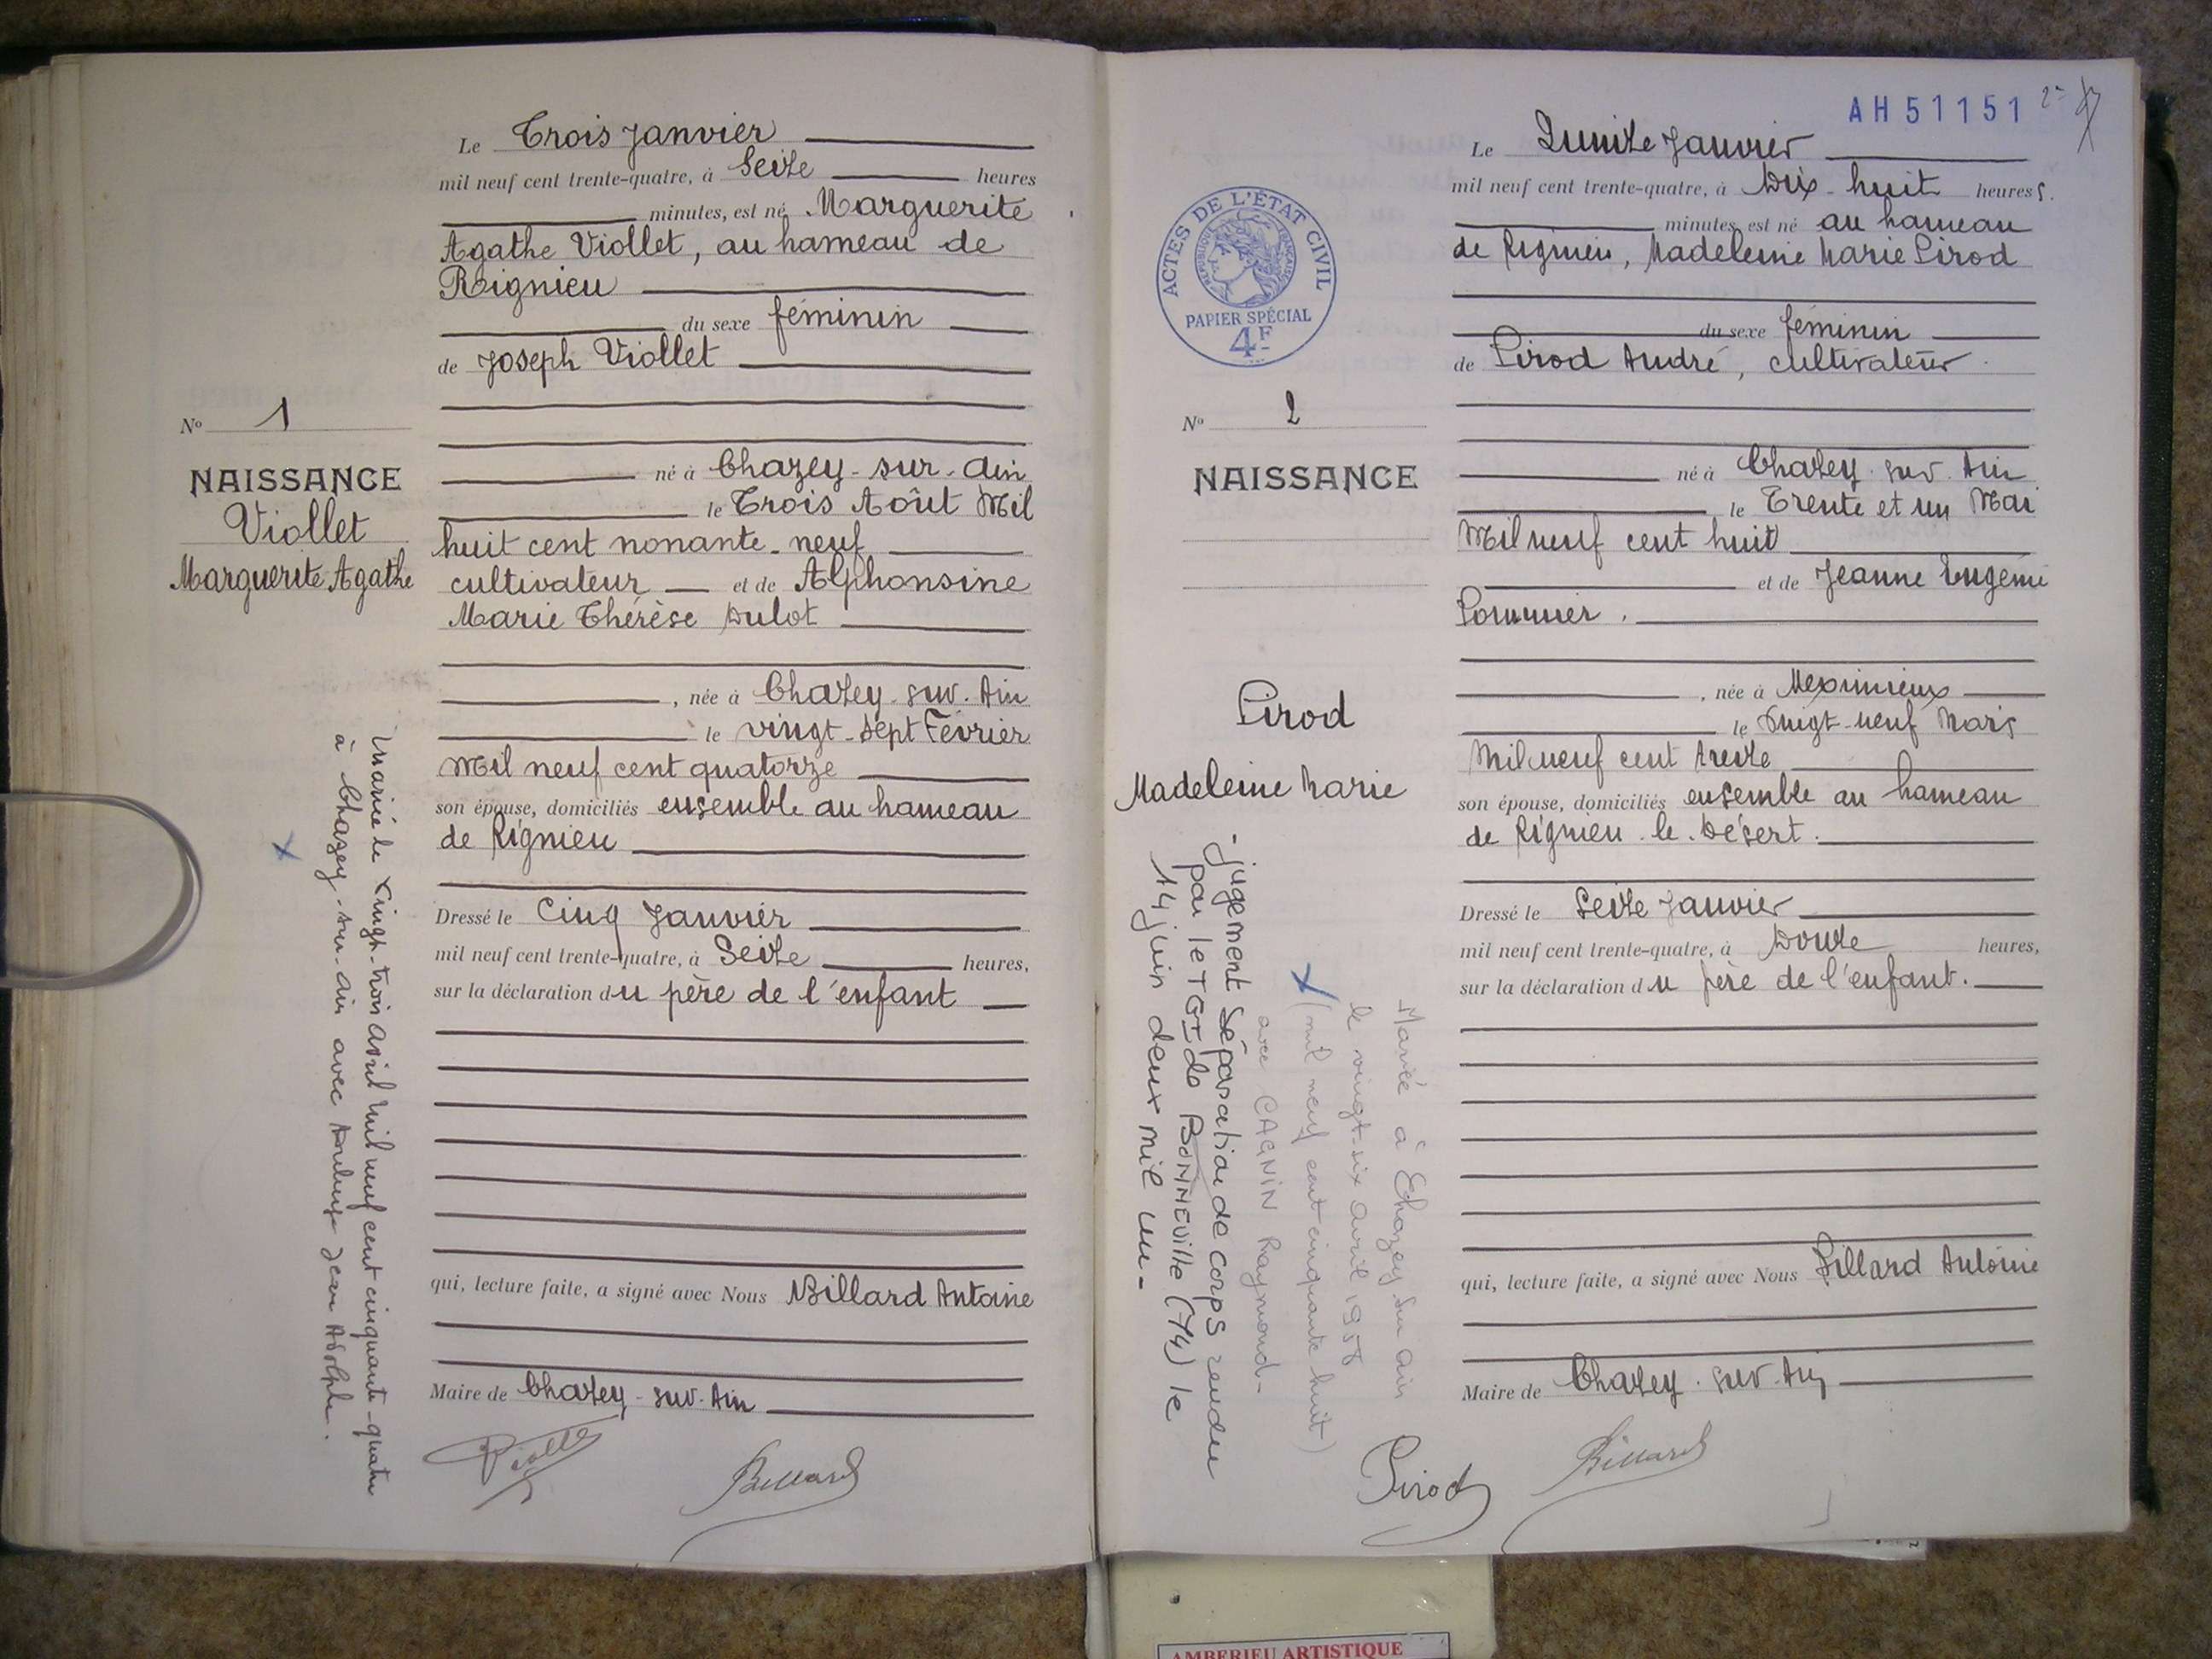 Le Trois Janvier
mil neuf cent trente-quatre, à Seize heures
minutes, est né Marguerite
Agathe Viollet, au hameau de
Rignieu
du sexe féminin
de Joseph Viollet
né à Chazey-sur-Ain
le Trois Août Mil
huit cent nonante-neuf
cultivateur et de Alphonsine
Marie Thérèse Dulot
, née à Chazey-sur-Ain
le vingt-sept Février
Mil neuf cent quatorze
son épouse, domiciliés ensemble au hameau
de Rignieu
Dressé le Cinq Janvier
mil neuf cent trente-quatre, à Seize heures,
sur la déclaration du père de l'enfant
qui, lecture faite, a signé avec Nous Billard Antoine
Maire de Chazey-sur-Ain
Viollet
Billard
No 1
NAISSANCE
Viollet
Marguerite Agathe
Marié le vingt-trois avril mil neuf cent cinquante-quatre
à Chazey-sur-Ain avec Jean Adolphe.
AH51151
Le Quinze Janvier
mil neuf cent trente-quatre, à Dix-huit heures.
minutes, est né au hameau
de Rignieu, Madeleine Marie Pirod
du sexe féminin
de Pirod André, cultivateur
né à Chazey-sur-Ain
le Trente et un Mai
Mil neuf cent huit
et de Jeanne Eugénie
Pommier.
, née à Meximieux
le Vingt-neuf Mars
Mil neuf cent treize
son épouse, domiciliés ensemble au hameau
de Rignieu-le-Désert.
Dressé le Seize Janvier
mil neuf cent trente-quatre, à Douze heures,
sur la déclaration du père de l'enfant.
qui, lecture faite, a signé avec Nous Billard Antoine
Maire de Chazey-sur-Ain
Pirod
Billard
ACTES DE L'ÉTAT CIVIL
RÉPUBLIQUE FRANÇAISE
PAPIER SPÉCIAL
4F
No 2
NAISSANCE
Pirod
Madeleine Marie
Mariée à Chazey sur Ain
le vingt-six avril 1958
(mil neuf cent cinquante huit)
avec CAGNIN Raymond-
-jugement Séparation de corps rendu
par le TGI de BONNEVILLE (74) le
14 juin deux mil un-
AMBERIEU ARTISTIQUE